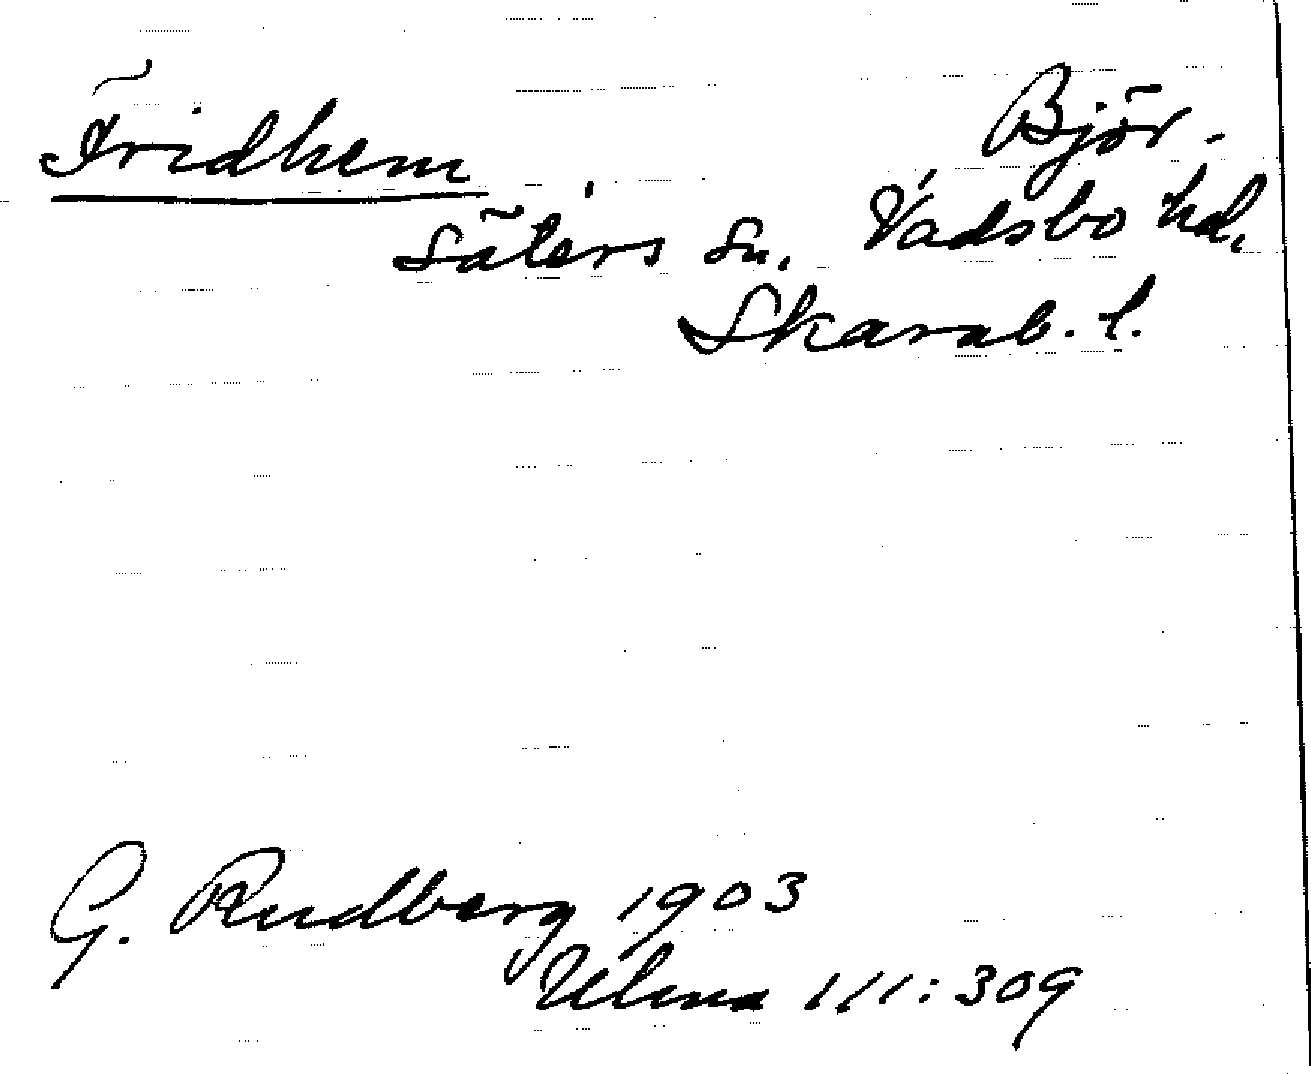 Fridhem Björ-
säters sn. Vadsbo hd.
Skarab. l.
G. Rudberg 1903
Ulma 111:309